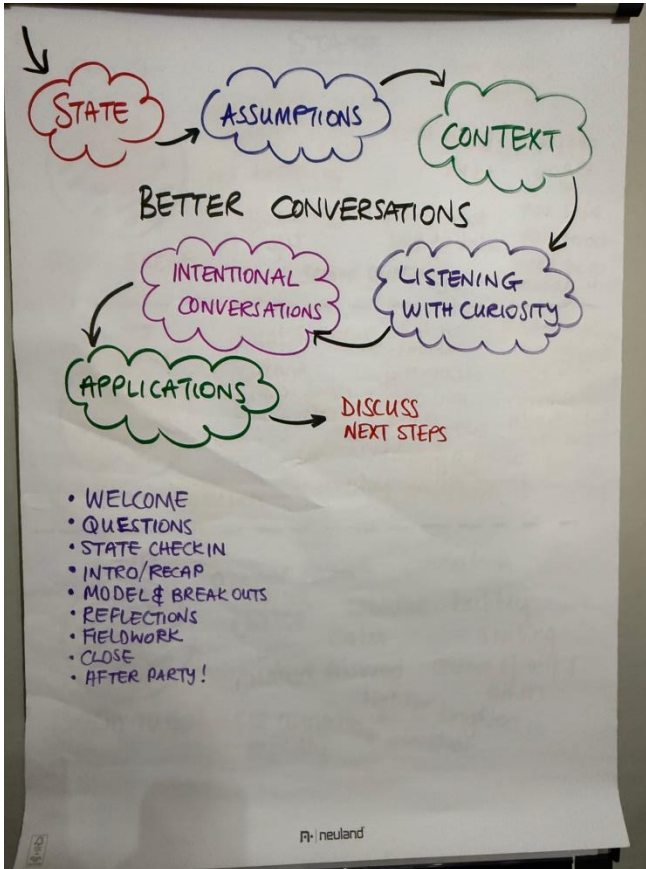 STATE
ASSUMPTIONS
CONTEXT
BETTER CONVERSATIONS
INTENTIONAL
CONVERSATIONS
LISTENING
WITH CURIOSITY
APPLICATIONS
DISCUSS
NEXT STEPS
• WELCOME
• QUESTIONS
• STATE CHECK IN
• INTRO/RECAP
• MODEL & BREAK OUTS
• REFLECTIONS
• FIELDWORK
• CLOSE
• AFTER PARTY!
neuland